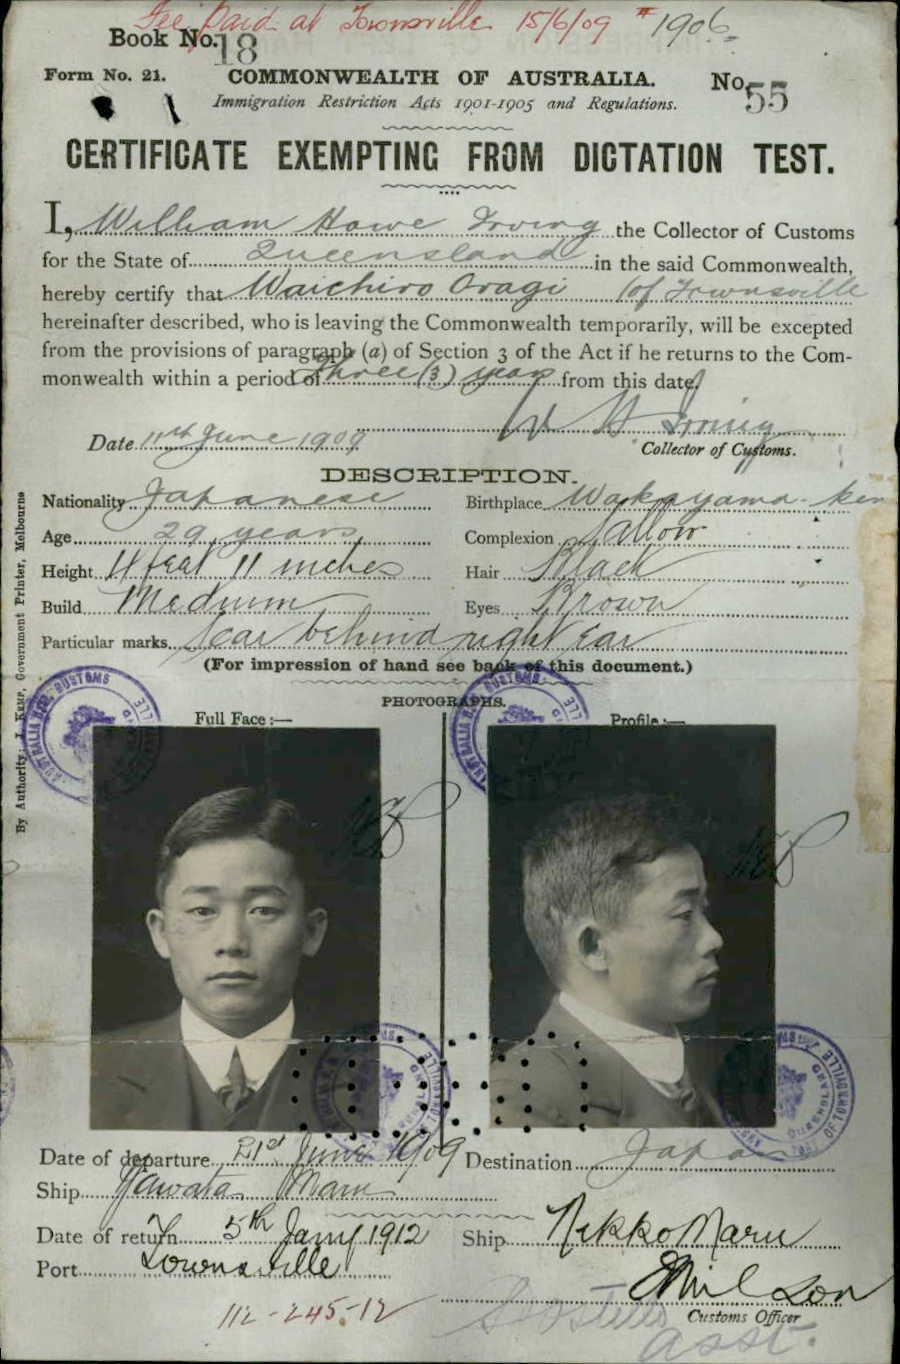 Fee Paid at Townsville 15/6/09 # 1906
Book No. 18
Form No. 21. COMMONWEALTH OF AUSTRALIA. No. 55
Immigration Restriction Acts 1901-1905 and Regulations.
CERTIFICATE EXEMPTING FROM DICTATION TEST.
I, William Howe Irving the Collector of Customs
for the State of Queensland in the said Commonwealth,
hereby certify that Waichiro Oragi (of Townsville
hereinafter described, who is leaving the Commonwealth temporarily, will be excepted
from the provisions of paragraph (a) of Section 3 of the Act if he returns to the Com-
monwealth within a period of three (3) years from this date.
W H Irving
Date 11th June 1909 Collector of Customs.
DESCRIPTION.
Nationality Japanese Birthplace Wakayama-ken
Age 29 years Complexion Sallow
Height 4 feet 11 inches Hair Black
Build Medium Eyes Brown
Particular marks Scar behind right ear
(For impression of hand see back of this document.)
PHOTOGRAPHS.
Full Face:— Profile:—
By Authority: J. Kemp, Government Printer, Melbourne
Date of departure 21st June 1909 Destination Japan
Ship Yawata Maru
Date of return 5th Jany 1912 Ship Nikko Maru
Port Townsville
Customs Officer
112-245-12
Asst.